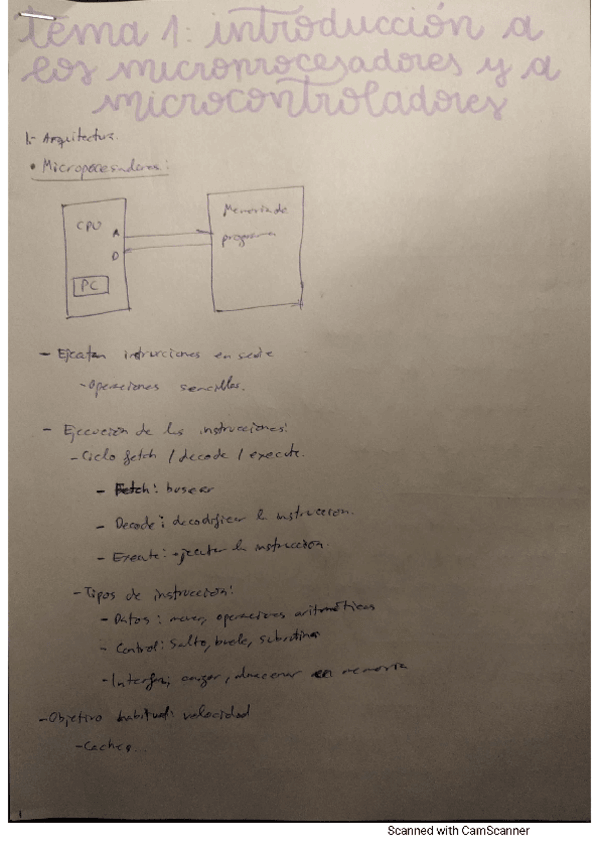 tema 1: introducción a
los microprocesadores y a
microcontroladores
1.- Arquitectura.
• Microprocesadores:
CPU
A
D
PC
Memoria de
programa
- Ejecutan instrucciones en serie
- Operaciones sencillas.
- Ejecución de las instrucciones:
- Ciclo fetch / decode / execute.
- Fetch: buscar
- Decode: decodificar la instrucción.
- Execute: ejecutar la instrucción.
- Tipos de instrucción:
- Datos: mover, operaciones aritméticas
- Control: Salto, bucle, subrutina
- Interfaz; cargar, almacenar en memoria
- Objetivo habitual: velocidad
- Caches...
Scanned with CamScanner